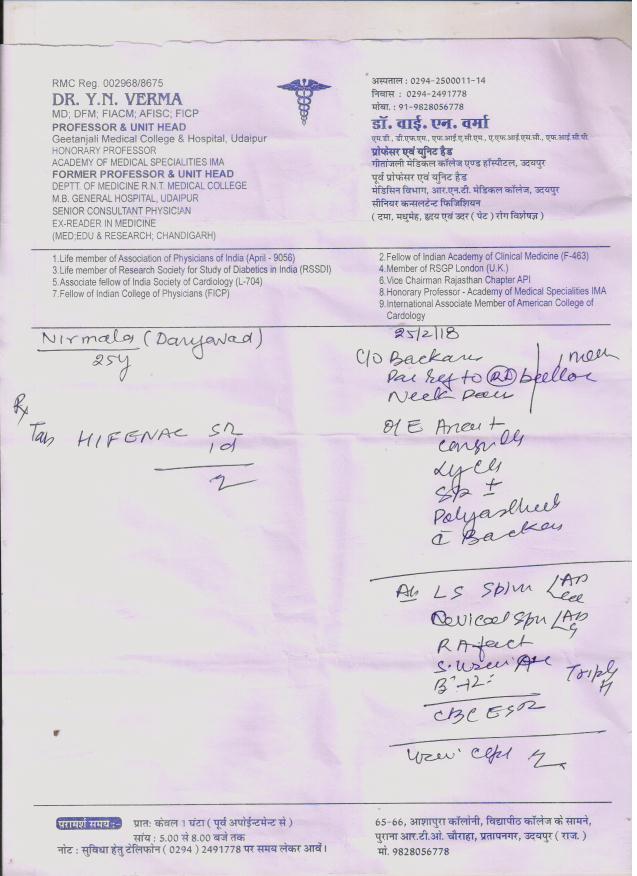 RMC Reg. 002968/8675
DR. Y.N. VERMA
MD; DFM; FIACM; AFISC; FICP
PROFESSOR & UNIT HEAD
Geetanjali Medical College & Hospital, Udaipur
HONORARY PROFESSOR
ACADEMY OF MEDICAL SPECIALITIES IMA
FORMER PROFESSOR & UNIT HEAD
DEPTT. OF MEDICINE R.N.T. MEDICAL COLLEGE
M.B. GENERAL HOSPITAL, UDAIPUR
SENIOR CONSULTANT PHYSICIAN
EX-READER IN MEDICINE
(MED;EDU & RESEARCH; CHANDIGARH)
अस्पताल : 0294-2500011-14
निवास : 0294-2491778
मोबा. : 91-9828056778
डॉ. वाई. एन. वर्मा
एम.डी., डी.एफ.एम., एफ.आई.ए.सी.एम., ए.एफ.आई.एस.सी., एफ.आई.सी.पी.
प्रोफेसर एवं यूनिट हैड
गीतांजली मेडिकल कॉलेज एण्ड हॉस्पीटल, उदयपुर
पूर्व प्रोफेसर एवं यूनिट हैड
मेडिसिन विभाग, आर.एन.टी. मेडिकल कॉलेज, उदयपुर
सीनियर कन्सलटेन्ट फिजिशियन
( दमा, मधुमेह, हृदय एवं उदर ( पेट ) रोग विशेषज्ञ )
1.Life member of Association of Physicians of India (April - 9056)
3 Life member of Research Society for Study of Diabetics in India (RSSDI)
5.Associate fellow of India Society of Cardiology (L-704)
7.Fellow of Indian College of Physicians (FICP)
2.Fellow of Indian Academy of Clinical Medicine (F-463)
4.Member of RSGP London (U.K.)
6.Vice Chairman Rajasthan Chapter API
8.Honorary Professor - Academy of Medical Specialities IMA
9.International Associate Member of American College of
Cardiology
Nirmala (Daryavad)
25y
Rx
Tab HIFENAC SR
1d
25/2/18
C/O
Neck Pain
O/E
LS Spine
RA fact
B-12
Triple H
CBC ESR
परामर्श समय :-
प्रात: केवल 1 घंटा ( पूर्व अपोईन्टमेन्ट से )
सांय : 5.00 से 8.00 बजे तक
नोट : सुविधा हेतु टेलिफोन ( 0294 ) 2491778 पर समय लेकर आवें।
65-66, आशापुरा कॉलोनी, विद्यापीठ कॉलेज के सामने,
पुराना आर.टी.ओ. चौराहा, प्रतापनगर, उदयपुर ( राज. )
मो. 9828056778